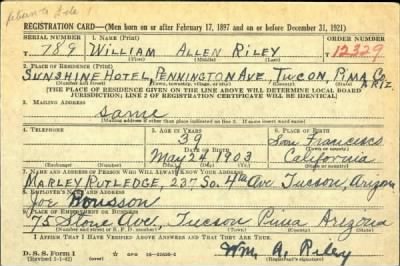 REGISTRATION CARD—(Men born on or after February 17, 1897 and on or before December 31, 1921)
SERIAL NUMBER 1. NAME (Print) ORDER NUMBER
789 WILLIAM ALLEN RILEY 12329
2. PLACE OF RESIDENCE (Print)
SUNSHINE HOTEL, PENNINGTON AVE, TUCSON, PIMA CO ARIZ.
[THE PLACE OF RESIDENCE GIVEN ON THE LINE ABOVE WILL DETERMINE LOCAL BOARD
JURISDICTION; LINE 2 OF REGISTRATION CERTIFICATE WILL BE IDENTICAL]
3. MAILING ADDRESS
Same
[Mailing address if other than place indicated on line 2. If same insert word same]
4. TELEPHONE 5. AGE IN YEARS 6. PLACE OF BIRTH
39 San Francisco
DATE OF BIRTH
May 24 1903 California
7. NAME AND ADDRESS OF PERSON WHO WILL ALWAYS KNOW YOUR ADDRESS
MARLEY RUTLEDGE, 237 So. 4th Ave Tucson, Arizona
8. EMPLOYER'S NAME AND ADDRESS
Joe
9. PLACE OF EMPLOYMENT OR BUSINESS
75 Stone Ave, Tucson Pima Arizona
I AFFIRM THAT I HAVE VERIFIED ABOVE ANSWERS AND THAT THEY ARE TRUE.
D. S. S. Form 1
(Revised 1-1-42)
Wm. A. Riley